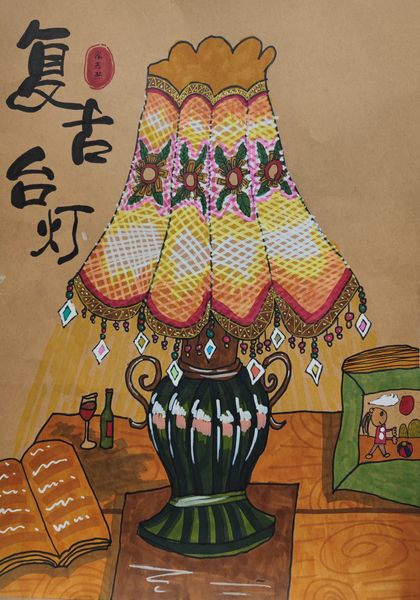 复古
台灯